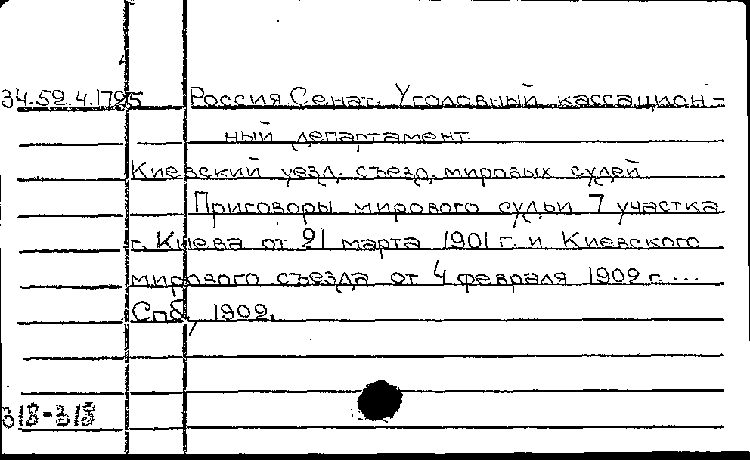 34.52.4.1795 Россия Сенат. Уголовный кассацион-
ный департамент
Киевский уезд. съезд. мировых судей
Приговоры мирового судьи 7 участка
г. Киева от 21 марта 1901 г. и Киевского
мирового съезда от 4 февраля 1902 г. ...
Спб, 1902.
318-318